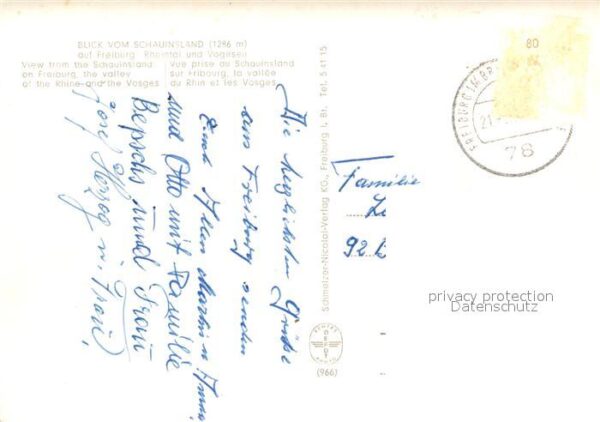 BLICK VOM SCHAUINSLAND (1286 m)
auf Freiburg Rheintal und Vogesen
View from the Schauinsland
on Freiburg, the valley
of the Rhine and the Vosges
Vue prise du Schauinsland
sur Fribourg, la vallée
du Rhin et les Vosges
Die herzlichsten Grüße
aus Freiburg senden
Euch Allen Martin u. Anna
und Otto mit Familie
und Frau
Herzog u. Frau,
Schmelzer-Nicolai-Verlag KG., Freiburg i. Br. Tel. 5 41 15
(966)
80
FREIBURG IM BR
21
78
Familie
92
privacy protection
Datenschutz